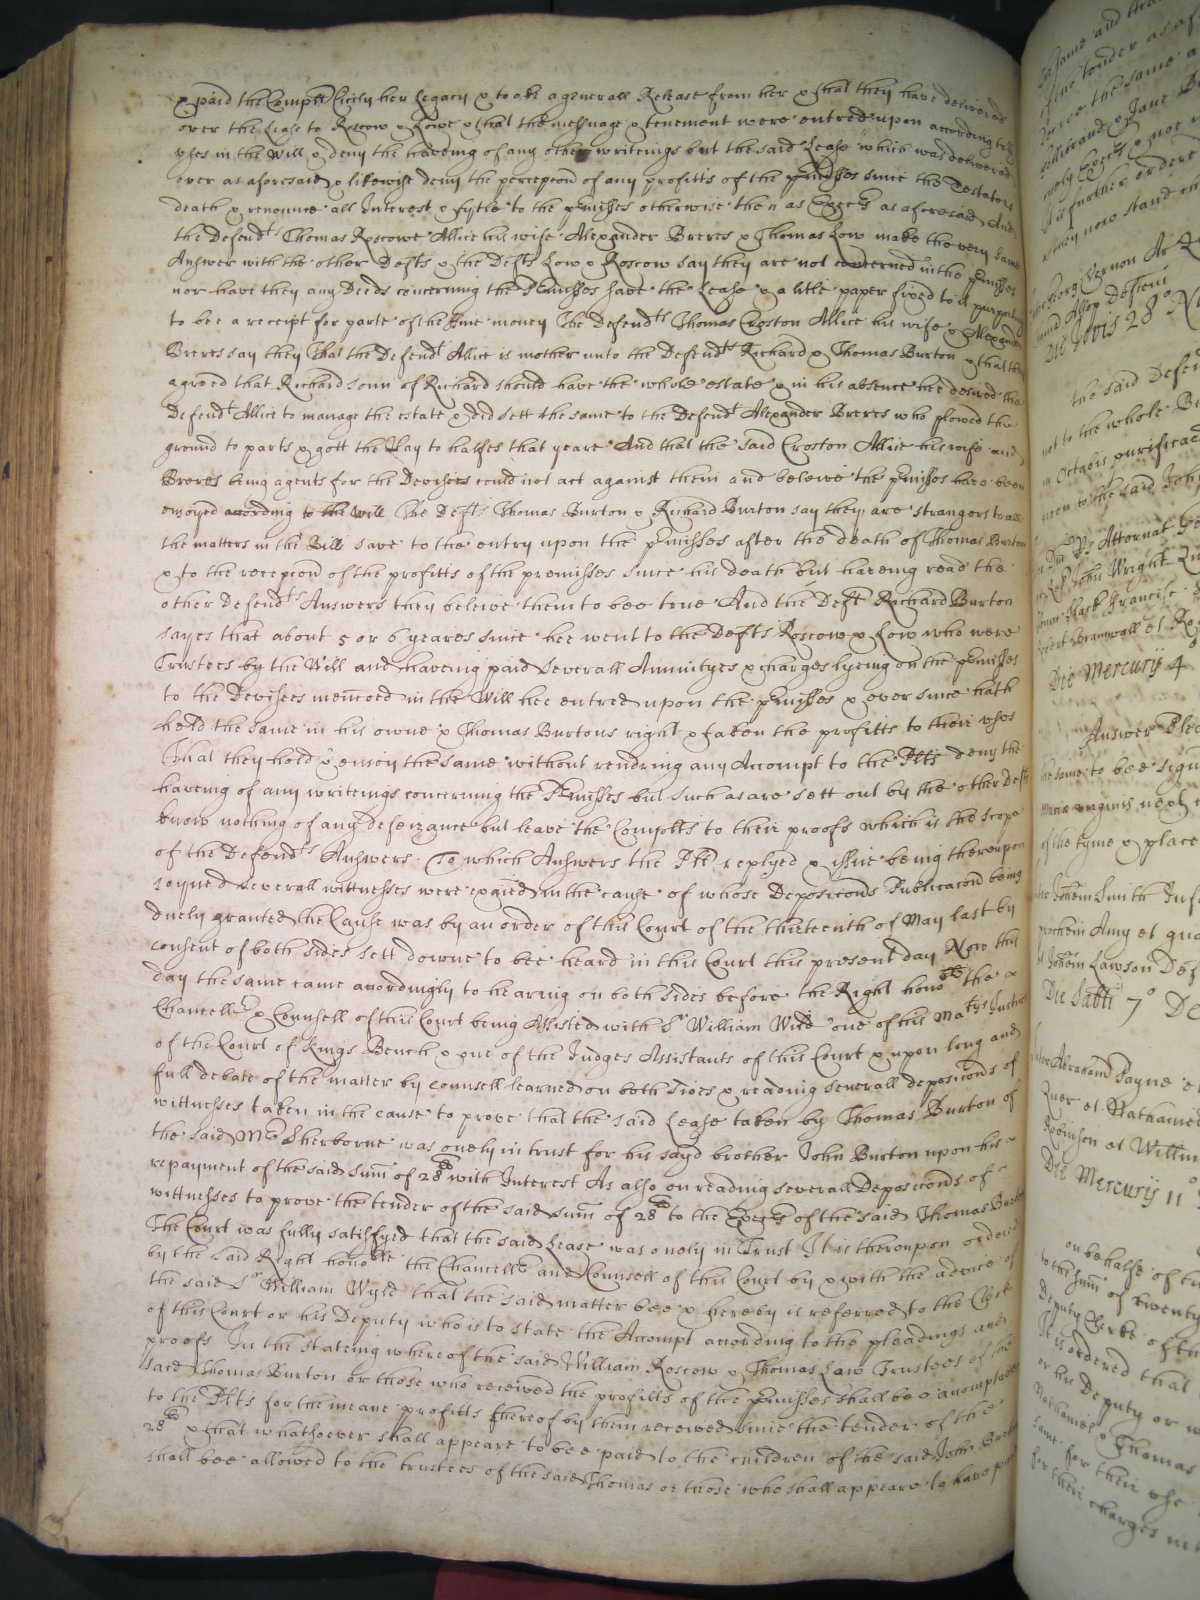 & paid the Compl<sup>t</sup> Cicily her Legacy & tooke a generall Release from her & that they have delivered
over the Lease to Roscow & Lowe & that the messuage & tenement were entred upon according to the
uses in the Will & deny the haveing of any other writeings but the said Lease which was delivered
over as aforesaid & likewise deny the percepcon of any profitts of the p<sup>r</sup>misses since the Testators
death & renounce all Interest & tytle to the p<sup>r</sup>misses otherwise then as Exec<sup>rs</sup> as aforesaid And
the Defend<sup>ts</sup> Thomas Roscowe Allice his wife Alexander Breres & Thomas Low make the very same
Answer with the other Defts & the Defts Low & Roscow say they are not concerned in the p<sup>r</sup>misses
nor have they any Deeds concerning the P<sup>r</sup>misses save the Lease & a litle paper fixed to it purporting
to bee a receipt for parte of the fine money The Defend<sup>ts</sup> Thomas Croston Allice his wife & Alexander
Breres say they That the Defend<sup>t</sup> Allice is mother unto the Defend<sup>ts</sup> Richard & Thomas Burton & that they
agreed that Richard sonn of Richard should have the whole estate & in his absence hee desired the
Defend<sup>t</sup> Allice to manage the estate & did sett the same to the Defend<sup>t</sup> Alexander Breres who plowed the
ground to parts & gott the Hay to halfes that yeare And that the said Croston Allice his wife and
Breres being agents for the Devisees could not act against them and beleive the p<sup>r</sup>misses have been
enioyed according to the will The Defts Thomas Burton & Richard Burton say they are strangers to all
the matters in the Bill save to the entry upon the p<sup>r</sup>misses after the death of Thomas Burton
& to the recepcon of the profitts of the premisses since his death but haveing read the
other Defend<sup>ts</sup> Answers they beleive them to bee true And the Deft Richard Burton
sayes that about 5 or 6 yeares since hee went to the Defts Roscow & Low who were
Trustees by the Will and haveing paid severall Annuityes & charges lyeing on the p<sup>r</sup>misses
to the Devisees menconed in the Will hee entred upon the p<sup>r</sup>misses & ever since hath
held the same in his owne & Thomas Burtons right & taken the profitts to their uses
That they hold & enioy the same without rendring any Accompt to the Plts deny the
haveing of any writeings concerning the P<sup>r</sup>misses but such as are sett out by the other Defts
know nothing of any defeizance but leave the Complts to their proofs which is the scope
of the Defend<sup>ts</sup> Answers To which Answers the Plts replyed & issue being thereupon
ioyned severall wittnesses were examined in the cause of whose Deposicons Publicacon being
duely granted the Cause was by an order of this Court of the thirteenth of May last by
consent of both sides sett downe to bee heard in this Court this present day Now this
day the same came accordingly to hearing on both sides before the Right hono<sup>ble</sup> the
Chancell<sup>r</sup> & Counsell of this Court being Assisted with S<sup>r</sup> William Wild one of his Ma<sup>tyes</sup> Justices
of the Court of Kings Bench & one of the Judges Assistants of this Court & upon long and
full debate of the matter by counsell learned on both sides & reading severall deposicons of
wittnesses taken in the cause to prove that the said Lease taken by Thomas Burton of
the said M<sup>r</sup> Sherborne was onely in trust for his sayd brother John Burton upon his
repayment of the said sum of 28<sup>li</sup> with Interest As also on reading severall Deposicons of
wittnesses to prove the tender of the said sum of 28<sup>li</sup> to the Exec<sup>rs</sup> of the said Thomas Burton
The Court was fully satisfyed that the said Lease was onely in Trust It is thereupon ordered
by the said Right hono<sup>ble</sup> the Chancell<sup>r</sup> and Counsell of this Court by & with the advice of
the said S<sup>r</sup> William Wyld that the said matter bee & hereby is referred to the Clerk
of this Court or his Deputy who is to state the Accompt according to the pleadings and
proofs In the stateing whereof the said William Roscow & Thomas Law Trustees of the
said Thomas Burton or those who received the profitts of the p<sup>r</sup>misses shall bee accomptable
to the Plts for the meane profitts thereof by them received since the tender of the
28<sup>li</sup> & that whatsoever shall appeare to bee paid to the children of the said John Burton
shall bee allowed to the trustees of the said Thomas or those who shall appeare to have paid
the same and
of the tender as af
the same a
& Jane B
not
It is further ordere
they now stand
Georg Vernon Ar
Allsop Defteni
Die Jovis 28<sup>o</sup> N
the said Defen
not to the whole B
in Octabis purificac
to the said Joh
Attornat
John Wright
Francisc
Bramwall et Ro
Die Mercurij 4<sup>o</sup>
Answer
the same to bee sign
next
of the tyme & place
Johem Smith
Amy et quo
Johem Lawson Def
Die Sabti 7<sup>o</sup> De
Abraham Payne
Quer et Nathaniel
Robinson et Willm
Die Mercurij 11<sup>o</sup>
on behalfe of the
to the sum of twenty
Deputy Clerke of th
It is ordered that
or his Deputy or
Nathaniel & Thomas
same for their use
for their charges in